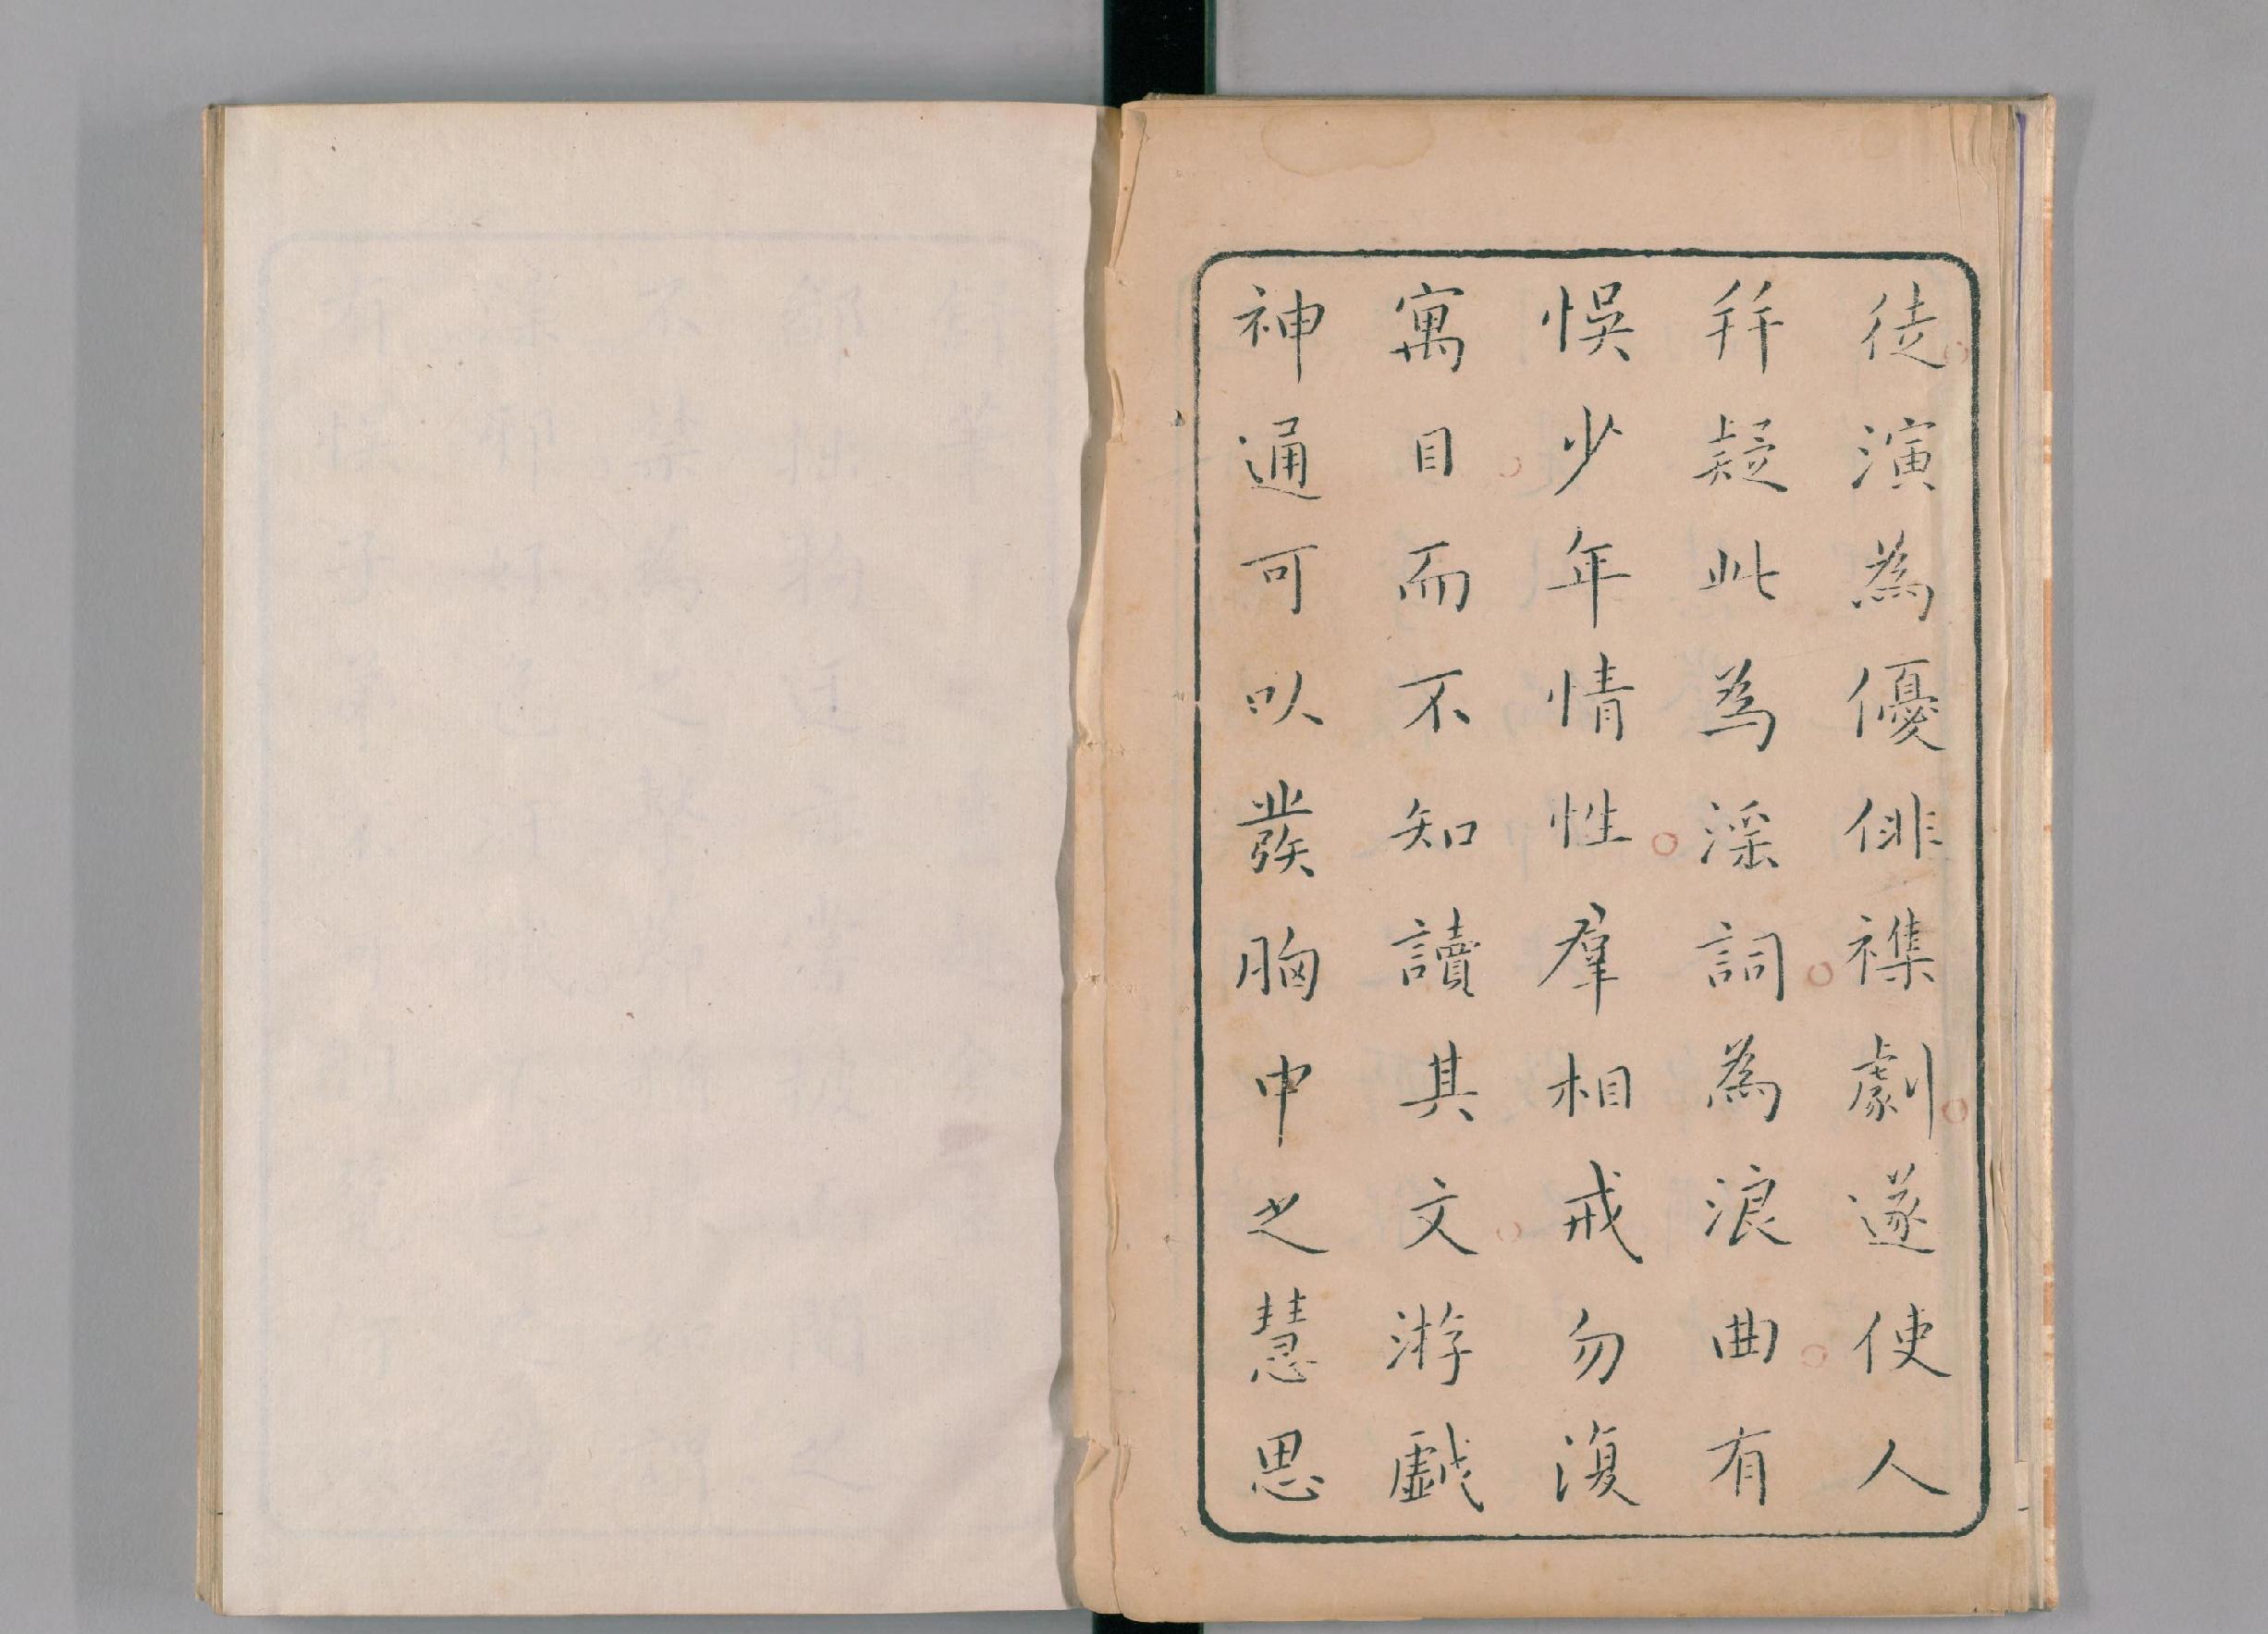 徒演為優俳襍劇遂使人
幷疑此為淫詞為浪曲有
悞少年情性羣相戒勿復
寓目而不知讀其文游戱
神通可以發胸中之慧思